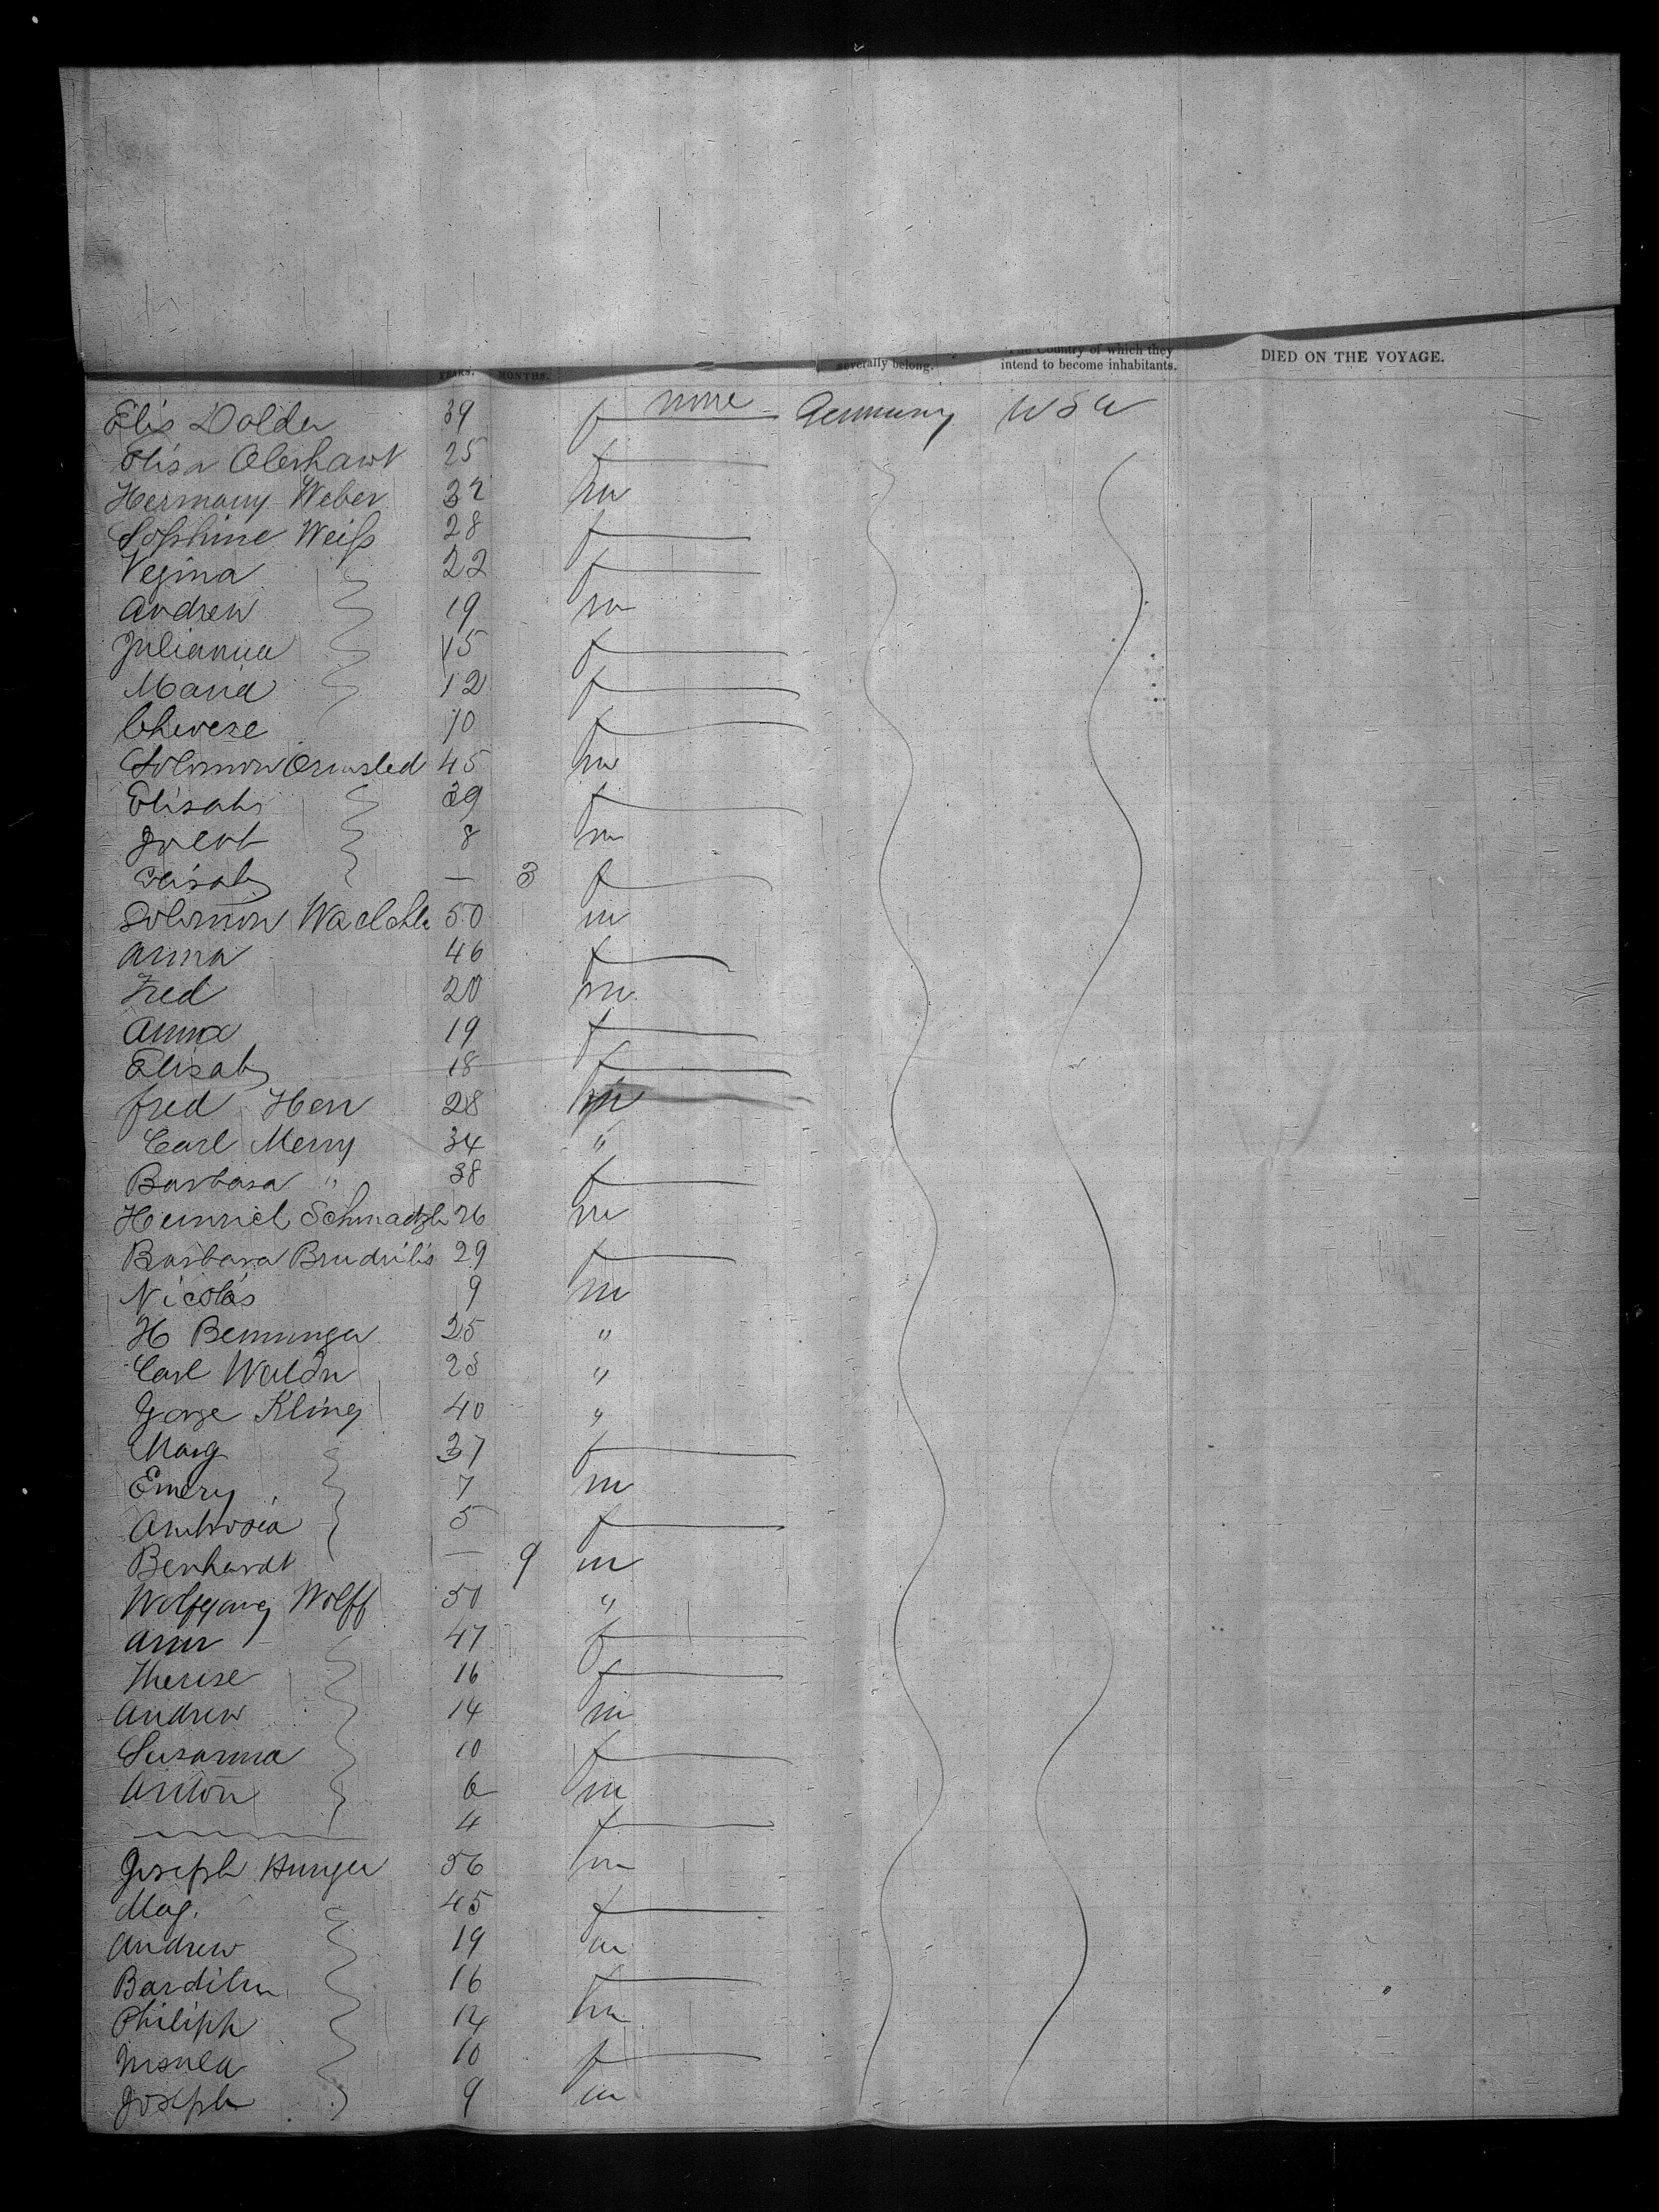 YEARS. MONTHS. severally belong. The Country of which they intend to become inhabitants. DIED ON THE VOYAGE.
Elis Dolder 39 f none Germany USA
Elisa Oberhawt 25 f
Hermany Weber 32 m
Sophine Weiss 28 f
Regina 22 f
Andrew 19 m
Julianna 15 f
Maria 12 f
Therese 10 f
Solomon 45 m
Elisab 39 f
8 m
Elisab — 3 f
Solomon 50 m
Anna 46 f
Fred 20 m
Anna 19 f
Elisab 18 f
Fred Herr 28 m
Carl Merry 34 "
Barbara " 38 f
Heinrich 26 m
Barbara 29 f
Nicolas 9 m
H Benninger 25 "
Carl 23 "
George Kling 40 "
Marg 37 f
Emery 7 m
Ambrosia 5 f
Benhardt — 9 m
Wolfgang Wolff 50 "
Ann 47 f
Therese 16 f
Andrew 14 m
Susanna 10 f
Anton 6 m
4 f
Joseph Hunger 56 m
Mag. 45 f
Andrew 19 m
16 f
Philiph 14 m
Ursula 10 f
Joseph 9 m